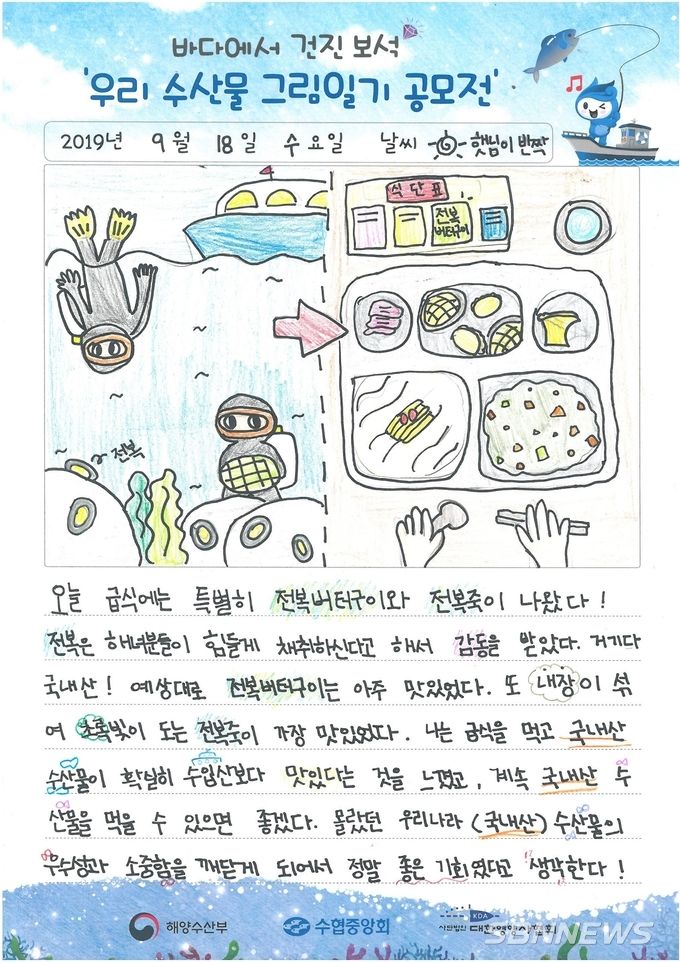 바다에서 건진 보석
'우리 수산물 그림일기 공모전'
2019년 9월 18일 수요일 날씨 햇님이 반짝
식단표
전복
버터구이
전복
오늘 급식에는 특별히 전복버터구이와 전복죽이 나왔다!
전복은 해녀분들이 힘들게 채취하신다고 해서 감동을 받았다. 거기다
국내산! 예상대로 전복버터구이는 아주 맛있었다. 또 내장이 섞
여 초록빛이 도는 전복죽이 가장 맛있었다. 나는 급식을 먹고 국내산
수산물이 확실히 수입산보다 맛있다는 것을 느꼈고, 계속 국내산 수
산물을 먹을 수 있으면 좋겠다. 몰랐던 우리나라 (국내산) 수산물의
우수성과 소중함을 깨닫게 되어서 정말 좋은 기회였다고 생각한다!
해양수산부 수협중앙회 KDA 사단법인 대한영양사협회
SBNNEWS